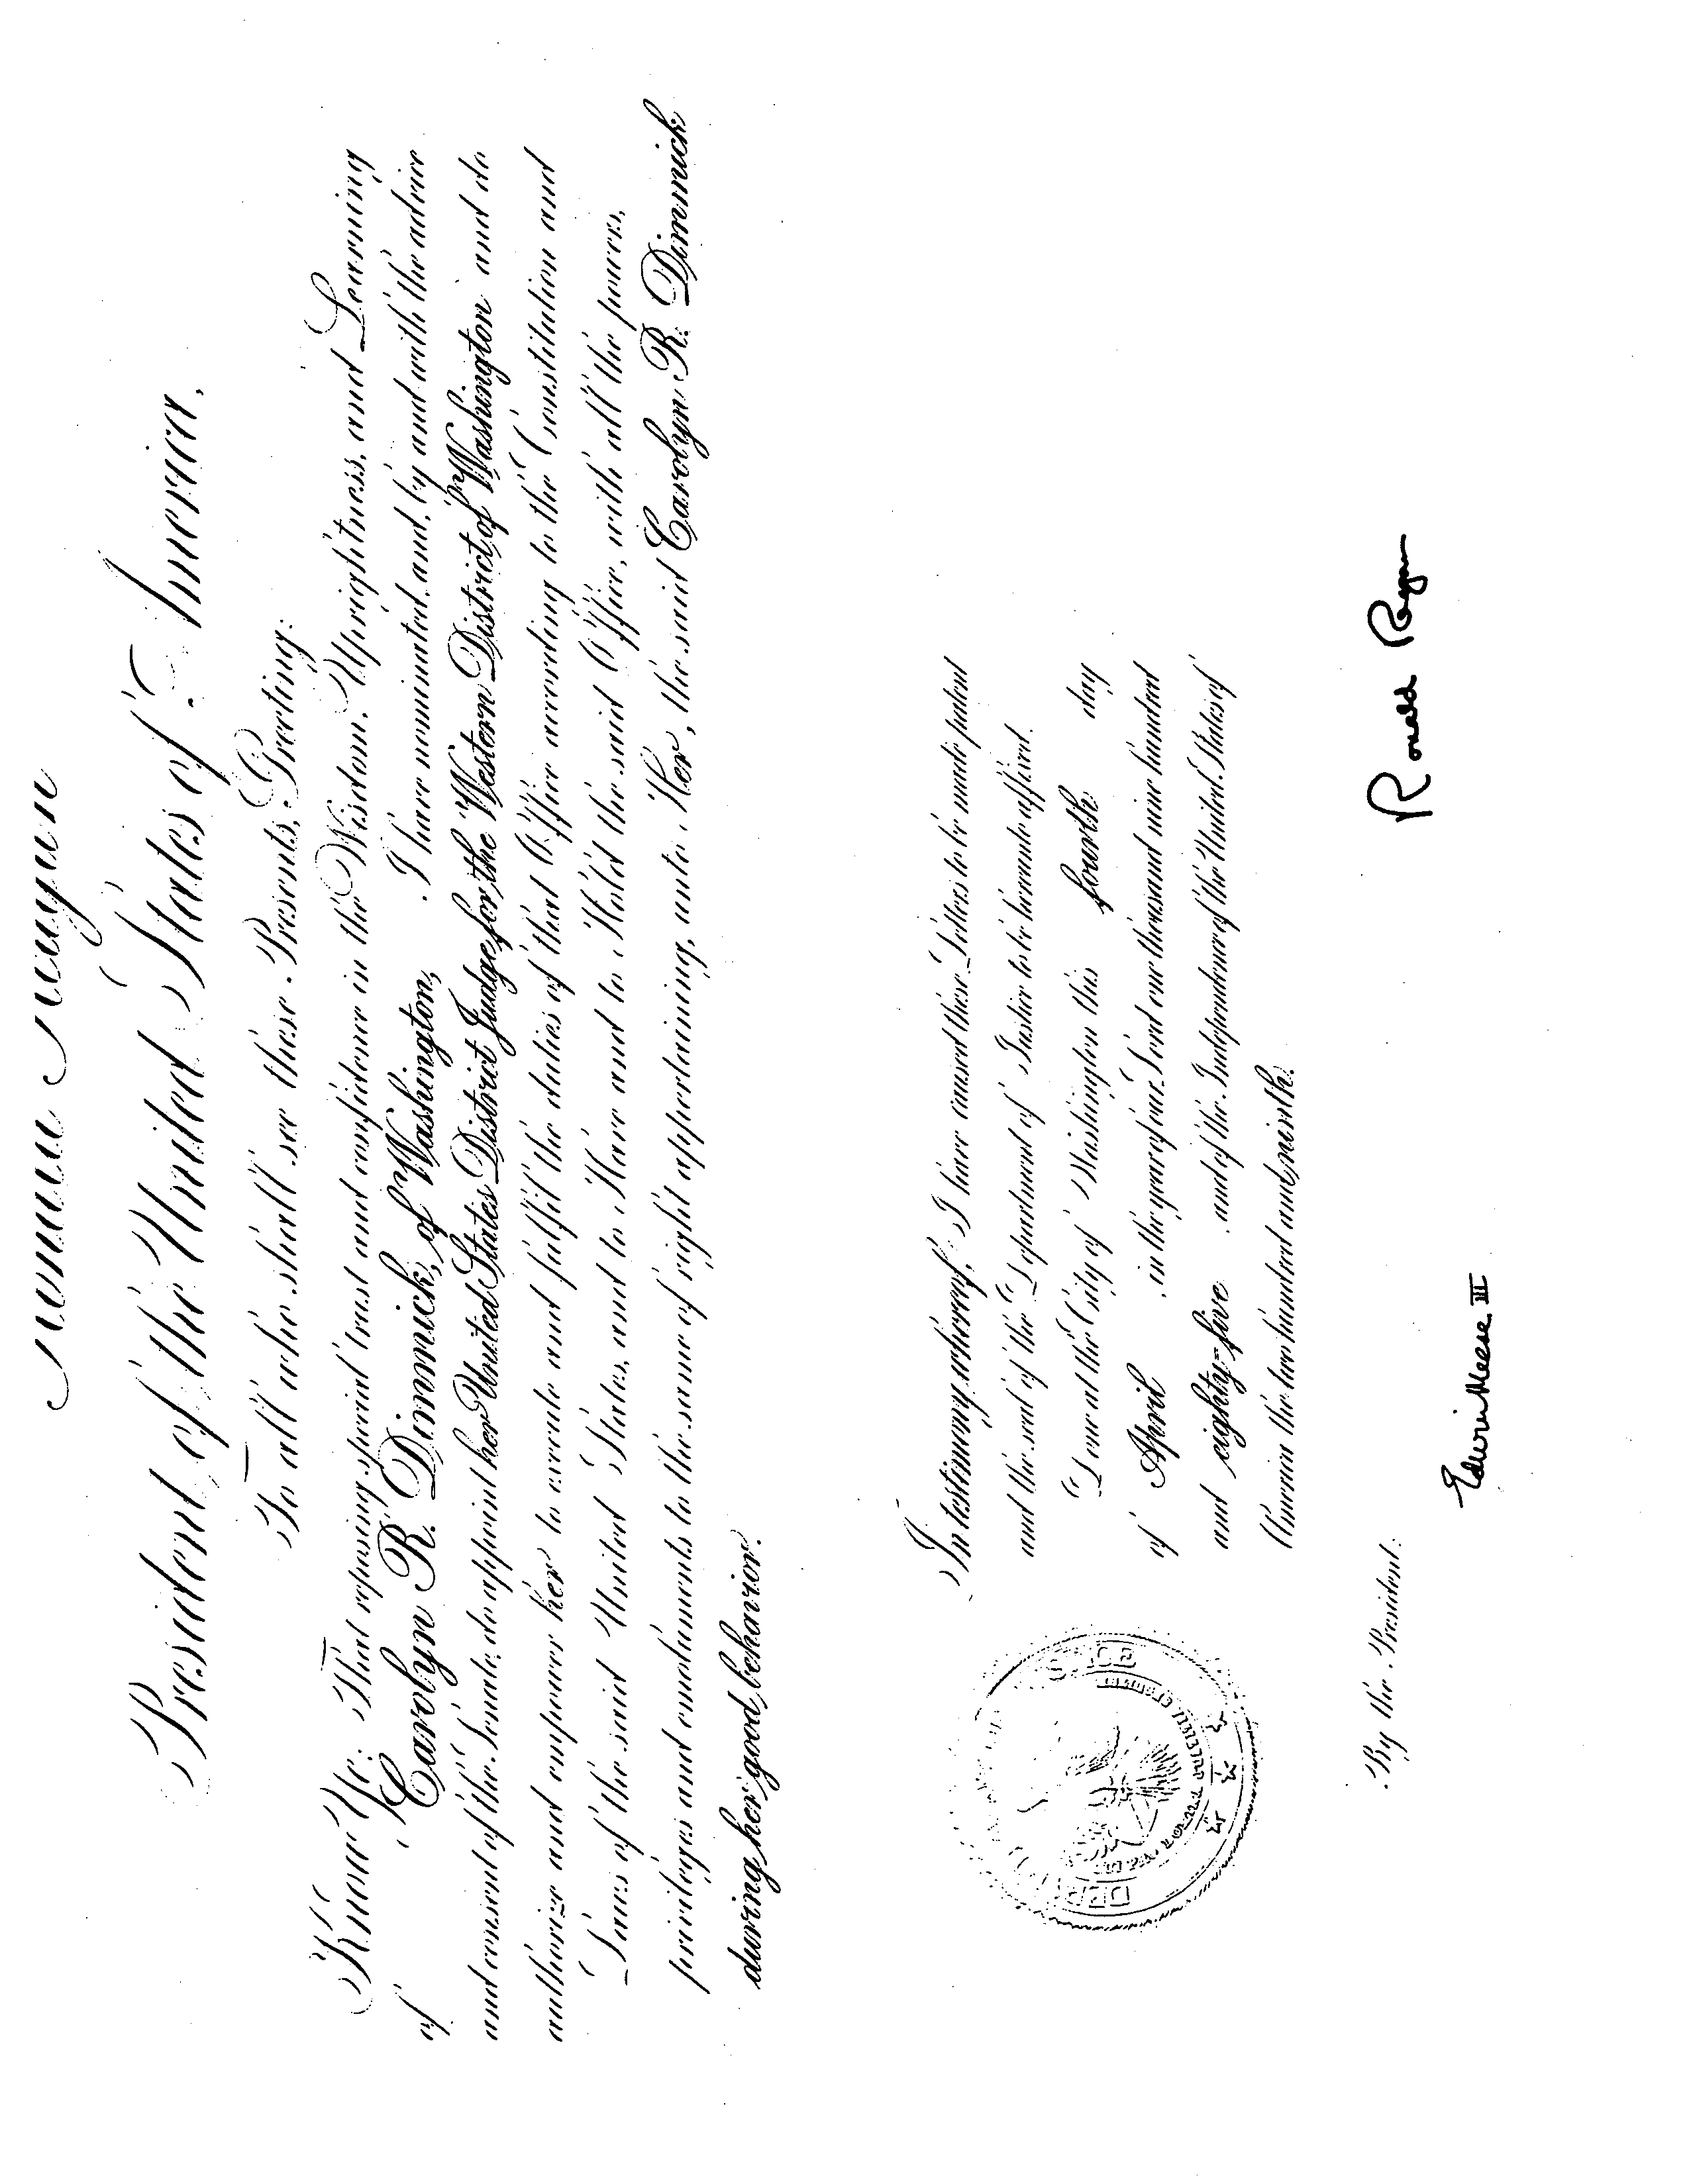 Ronald Reagan
President of the United States of America,
To all who shall see these Presents, Greeting:
Know Ye: That reposing special trust and confidence in the Wisdom, Uprightness, and Learning
of Carolyn R. Dimmick, of Washington, I have nominated, and, by and with the advice
and consent of the Senate, do appoint her United States District Judge for the Western District of Washington and do
authorize and empower her to execute and fulfil the duties of that Office according to the Constitution and
Laws of the said United States, and to Have and to Hold the said Office, with all the powers,
privileges and emoluments to the same of right appertaining, unto Her, the said Carolyn R. Dimmick
during her good behavior.
In testimony whereof, I have caused these Letters to be made patent
and the seal of the Department of Justice to be hereunto affixed.
Done at the City of Washington this fourth day
of April in the year of our Lord one thousand nine hundred
and eighty-five and of the Independence of the United States of
America the two hundred and ninth.
By the President:
Ronald Reagan
Edwin Meese III